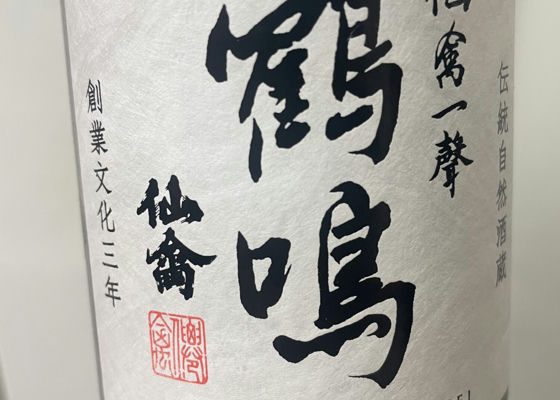 伝統自然酒蔵
仙禽一聲
鶴鳴
仙禽
創業文化三年